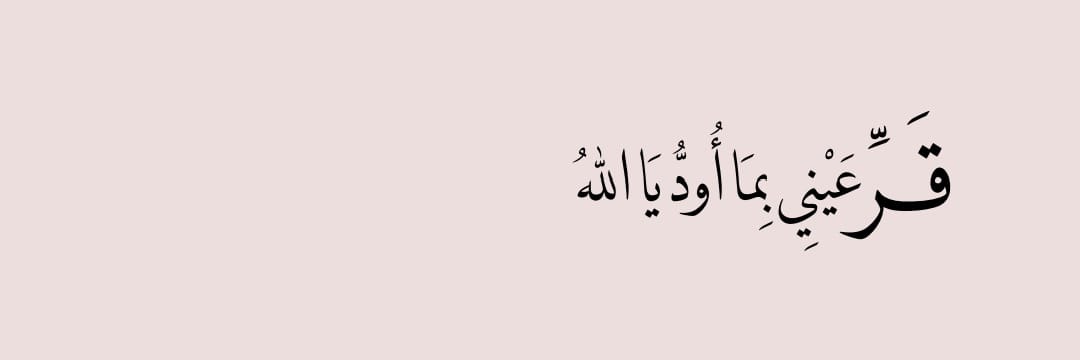 قَرِّ عَيْنِي بِمَا أُودُّ يَا اللهُ